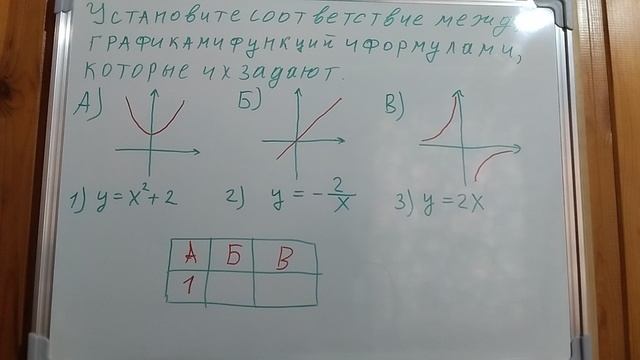 Установите соответствие между
графиками функций и формулами,
которые их задают.
А) Б) В)
1) y = x² + 2 2) y = - 2/x 3) y = 2x
А Б В
1